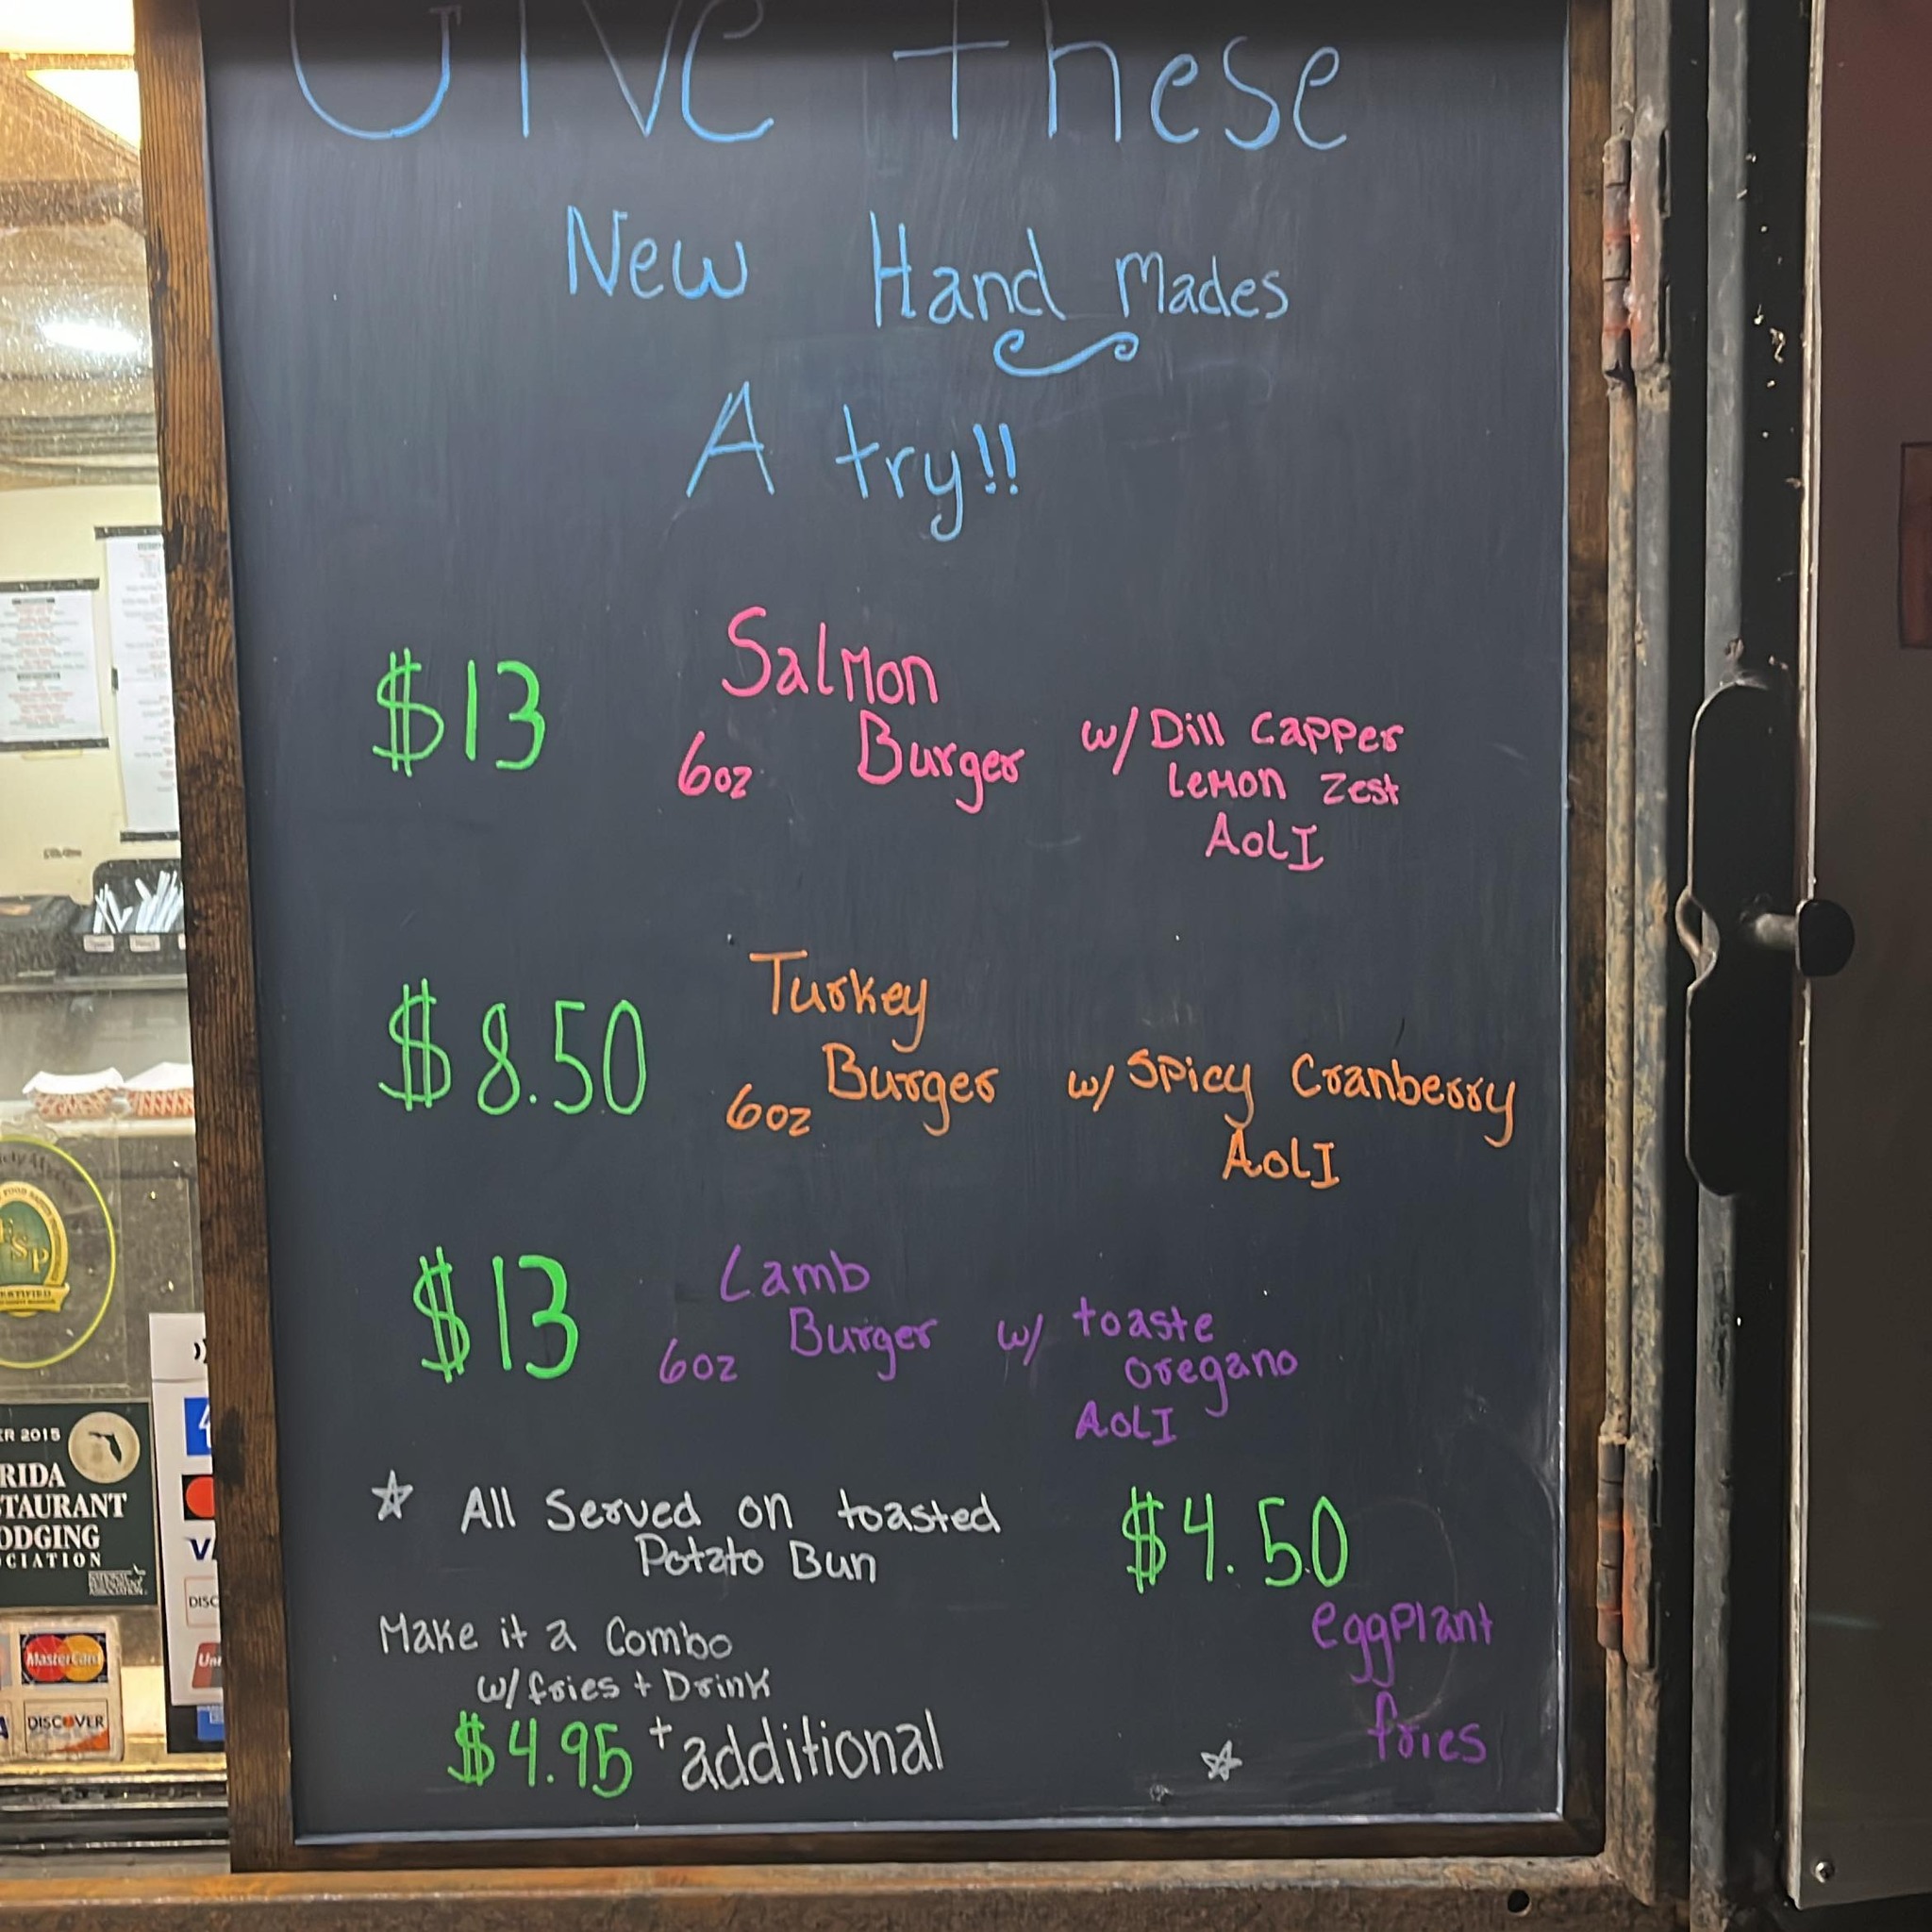 Give these
New Hand Mades
A try!!
$13 Salmon
6oz Burger w/ Dill Capper
Lemon Zest
AoLI
$8.50 Turkey
6oz Burger w/ Spicy Cranberry
AoLI
$13 Lamb
6oz Burger w/ toaste
oregano
AoLI
☆ All Served on toasted
Potato Bun
$4.50
eggplant
fries
Make it a Combo
w/fries + Drink
$4.95 + additional
☆
FSP
R 2015
RIDA
TAURANT
ODGING
CIATION
MasterCard
DISCOVER
DISC